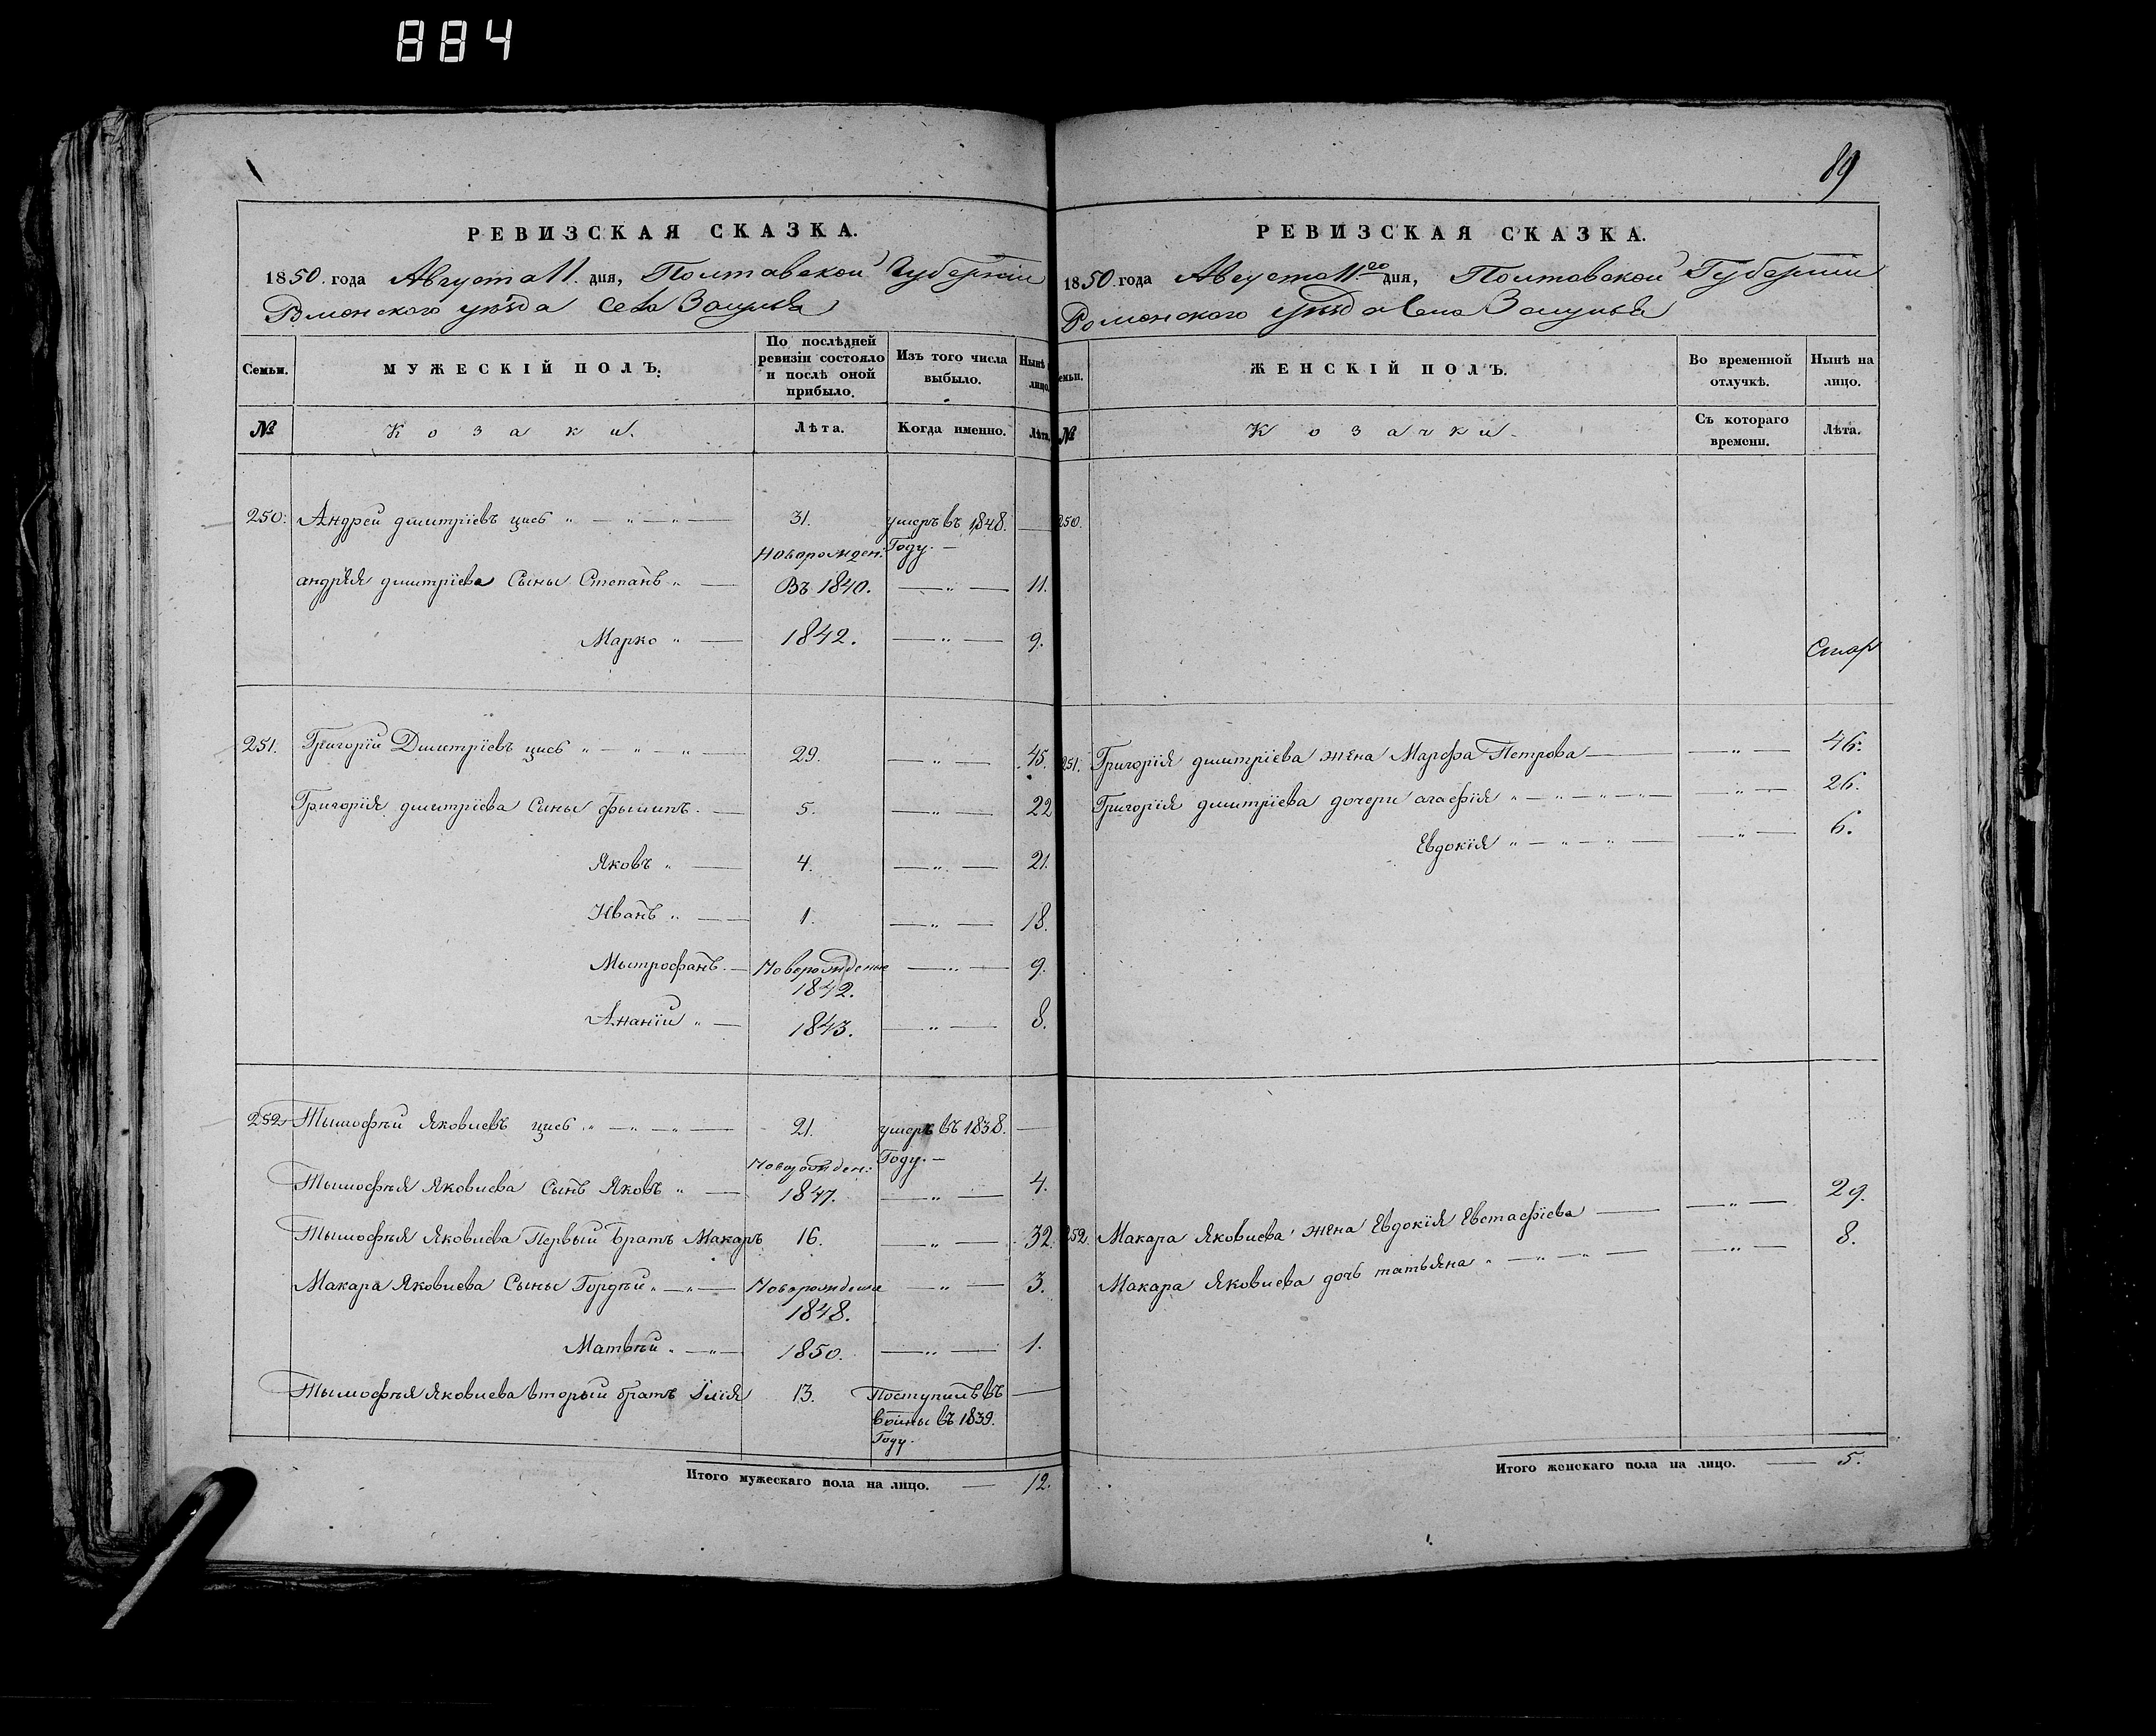 884
89
РЕВИЗСКАЯ СКАЗКА.
1850 года Августа 11 дня, Полтавской Губернiи
Роменского уѣзда Села
Семьи.
МУЖЕСКІЙ ПОЛЪ.
По послѣдней ревизіи состояло и послѣ оной прибыло.
Изъ того числа выбыло.
Нынѣ лицо.
№
Козаки.
Лѣта.
Когда именно.
Лѣта.
250. Андрей дмитрїевъ цисъ " — " — " — 31. умеръ въ 1848. Году. —
андрѣя дмитрїева Сыны Степанъ " — Новорожден: Въ 1840. — " — 11.
Марко " — 1842. — " — 9.
251. Григорїй Дмитрїевъ цисъ " — " — " — 29. — " — 45.
Григорїя дмитрїева Сыны филипъ. — 5. — " — 22
Яковъ " — 4. — " — 21.
Иванъ " — 1. — " — 18.
Мытрофанъ. — Новорожденые 1842. — " — 9.
Ананїй " — 1843. — " — 8.
252 Тымофѣй Яковлевъ цисъ " — " — " — 21. умеръ въ 1838. Году. —
Тымофѣя Яковлева Сынъ Яковъ " — Новорожден: 1847. — " — 4.
Тымофѣя Яковлева Первый братъ Макаръ 16. — " — 32.
Макара Яковлева Сыны Гордѣй " — " — Новорождены 1848. — " — 3.
Матвѣй " — " — 1850. — " — 1.
Тымофѣя Яковлева вторый братъ Їлїя 13. Поступилъ въ войны въ 1839. Году. —
Итого мужескаго пола на лицо. — 12.
РЕВИЗСКАЯ СКАЗКА.
1850 года Августа 11.го дня, Полтавской Губернїи
Роменского уѣзда Села
Семьи.
ЖЕНСКІЙ ПОЛЪ.
Во временной отлучкѣ.
Нынѣ на лицо.
№
Козачки.
Съ котораго времени.
Лѣта.
250.
251. Григорїя дмитрїева жена Марфа Петрова — — " — 46.
Григорїя дмитрїева дочери агафїя " — " — " — " — — " — 26.
Евдокїя " — " — " — — " — 6.
252. Макара Яковлева жена Евдокїя Евстафїева — — " — 29.
Макара Яковлева дочь татьяна " — " — " — — " — 8.
Итого женскаго пола на лицо. — 5.